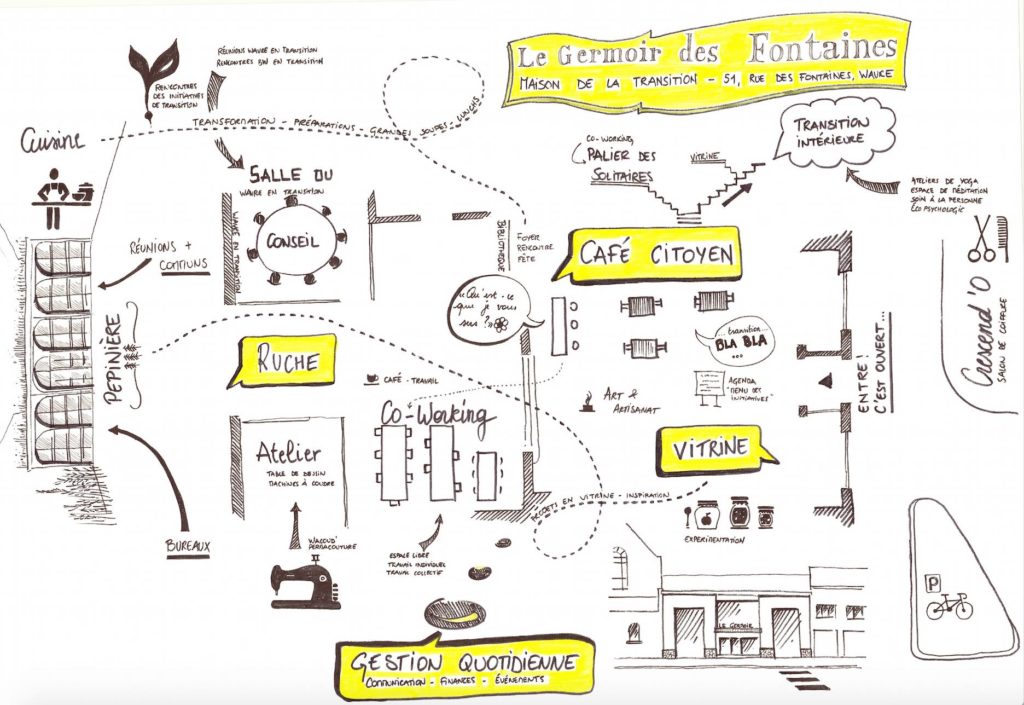 Le Germoir des Fontaines
Maison de la Transition - 51, rue des Fontaines, Wavre
Réunions Wavre en Transition
Rencontres BW en Transition
Rencontres
des initiatives
de transition
Cuisine
Transformation - Préparations - Grandes soupes - Lunchs
Salle du
Wavre en Transition
Conseil
Wavre en Transition
Réunions +
communs
Pépinière
Bureaux
Bibliothèque
Foyer
Rencontre
Fête
Co-working
Palier des
Solitaires
Vitrine
Transition
intérieure
Ateliers de yoga
Espace de méditation
Soin à la personne
Écopsychologie
Café Citoyen
"Qu'est-ce
que je vous
sers ?"
transition...
Bla Bla
...
Agenda
"Menu des
initiatives"
Art &
Artisanat
Entre!
C'est ouvert...
Crescend'O
Salon de coiffure
Ruche
Café - Travail
Co-Working
Atelier
Table de dessin
Machines à coudre
Permacouture
Espace libre
Travail individuel
Travail collectif
Vitrine
Projets en vitrine - Inspiration
Expérimentation
Le Germoir
P
Gestion Quotidienne
Communication - Finances - Événements